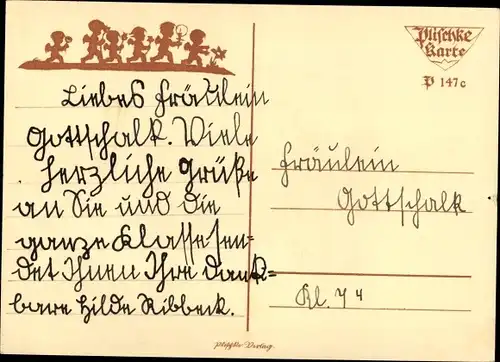 Plischke
Karte
P 147c
Liebes Fräulein
Gottschalk. Viele
herzliche Grüße
an Sie und die
ganze Klasse sen=
det Ihnen Ihre dank=
bare Hilde Ribbeck.
Fräulein
Gottschalk
Kl. 7 4
Plischke Verlag.